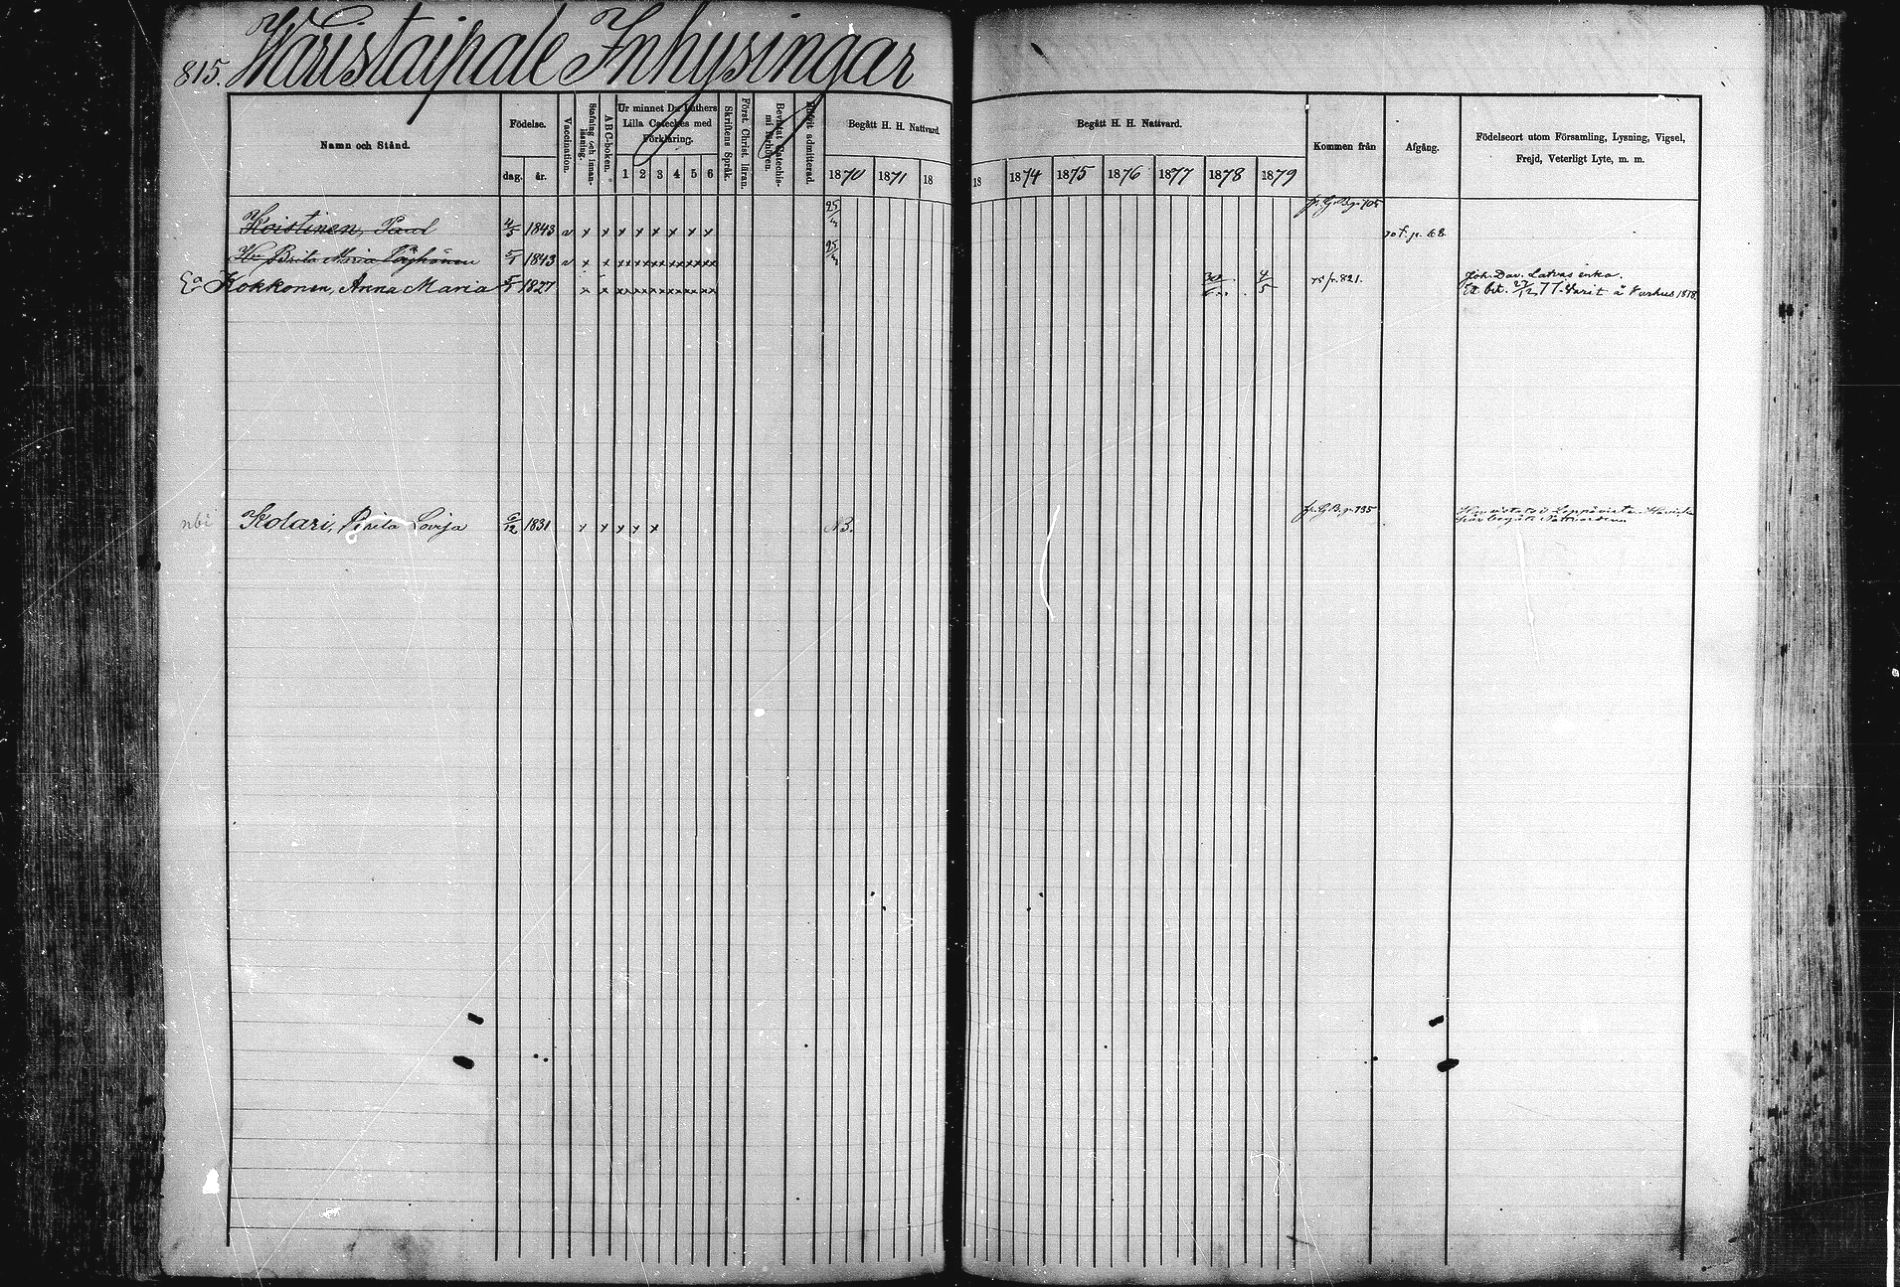 815. Waristaipale Inhysingar
Namn och Stånd.
Födelse.
dag. år.
Vaccination.
Stafning och innan-läsning.
ABC-boken.
Ur minnet Dr Luthers
Lilla Cateches med
Förklaring.
1 2 3 4 5 6
Skriftens Språk.
Först. Christ. läran.
Bevistat Catechis-mi förhören.
Blifvit admitterad.
Begått H. H. Nattvard.
1870 1871 18
Begått H. H. Nattvard.
18 1874 1875 1876 1877 1878 1879
Kommen från
Afgång.
Födelseort utom Församling, Lysning, Vigsel,
Frejd, Veterligt Lyte, m. m.
Hoistinen, Paul 4/5 1843 v x x x x x x x x fr. G. B. p. 105 70 f. p. 68.
Hu Brita Maria 5/1 1843 v x x xx xx xx xx xx xx
Ea Kokkonen, Anna Maria 5/5 1827 x x xx xx xx xx xx xx 4/5 75 p. 821. Joh. Dav. Latvas enka.
Ex bet. 27/12 77. Varit å Varkus 1878.
nbi Kolari, Brita Lovisa 6/12 1831 x x x x x NB. fr. G. B. p. 735